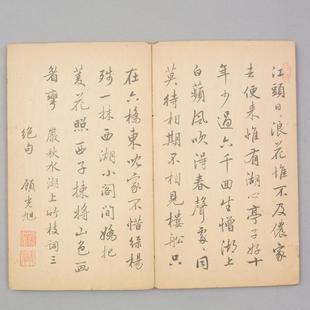 江頭日浪花堆不及儂家
去便来惟有湖心亭子好十
年少過六千回生憎湖上
白蘋風吹得春聲處〻同
莫待相期不相見樓船只
在六橋東吹家不惜綠楊
殘一抹西湖小閣間嬌把
菱花照西子揀将山色画
眉彎 嚴秋水湖上竹枝詞三
絶句 顧光旭